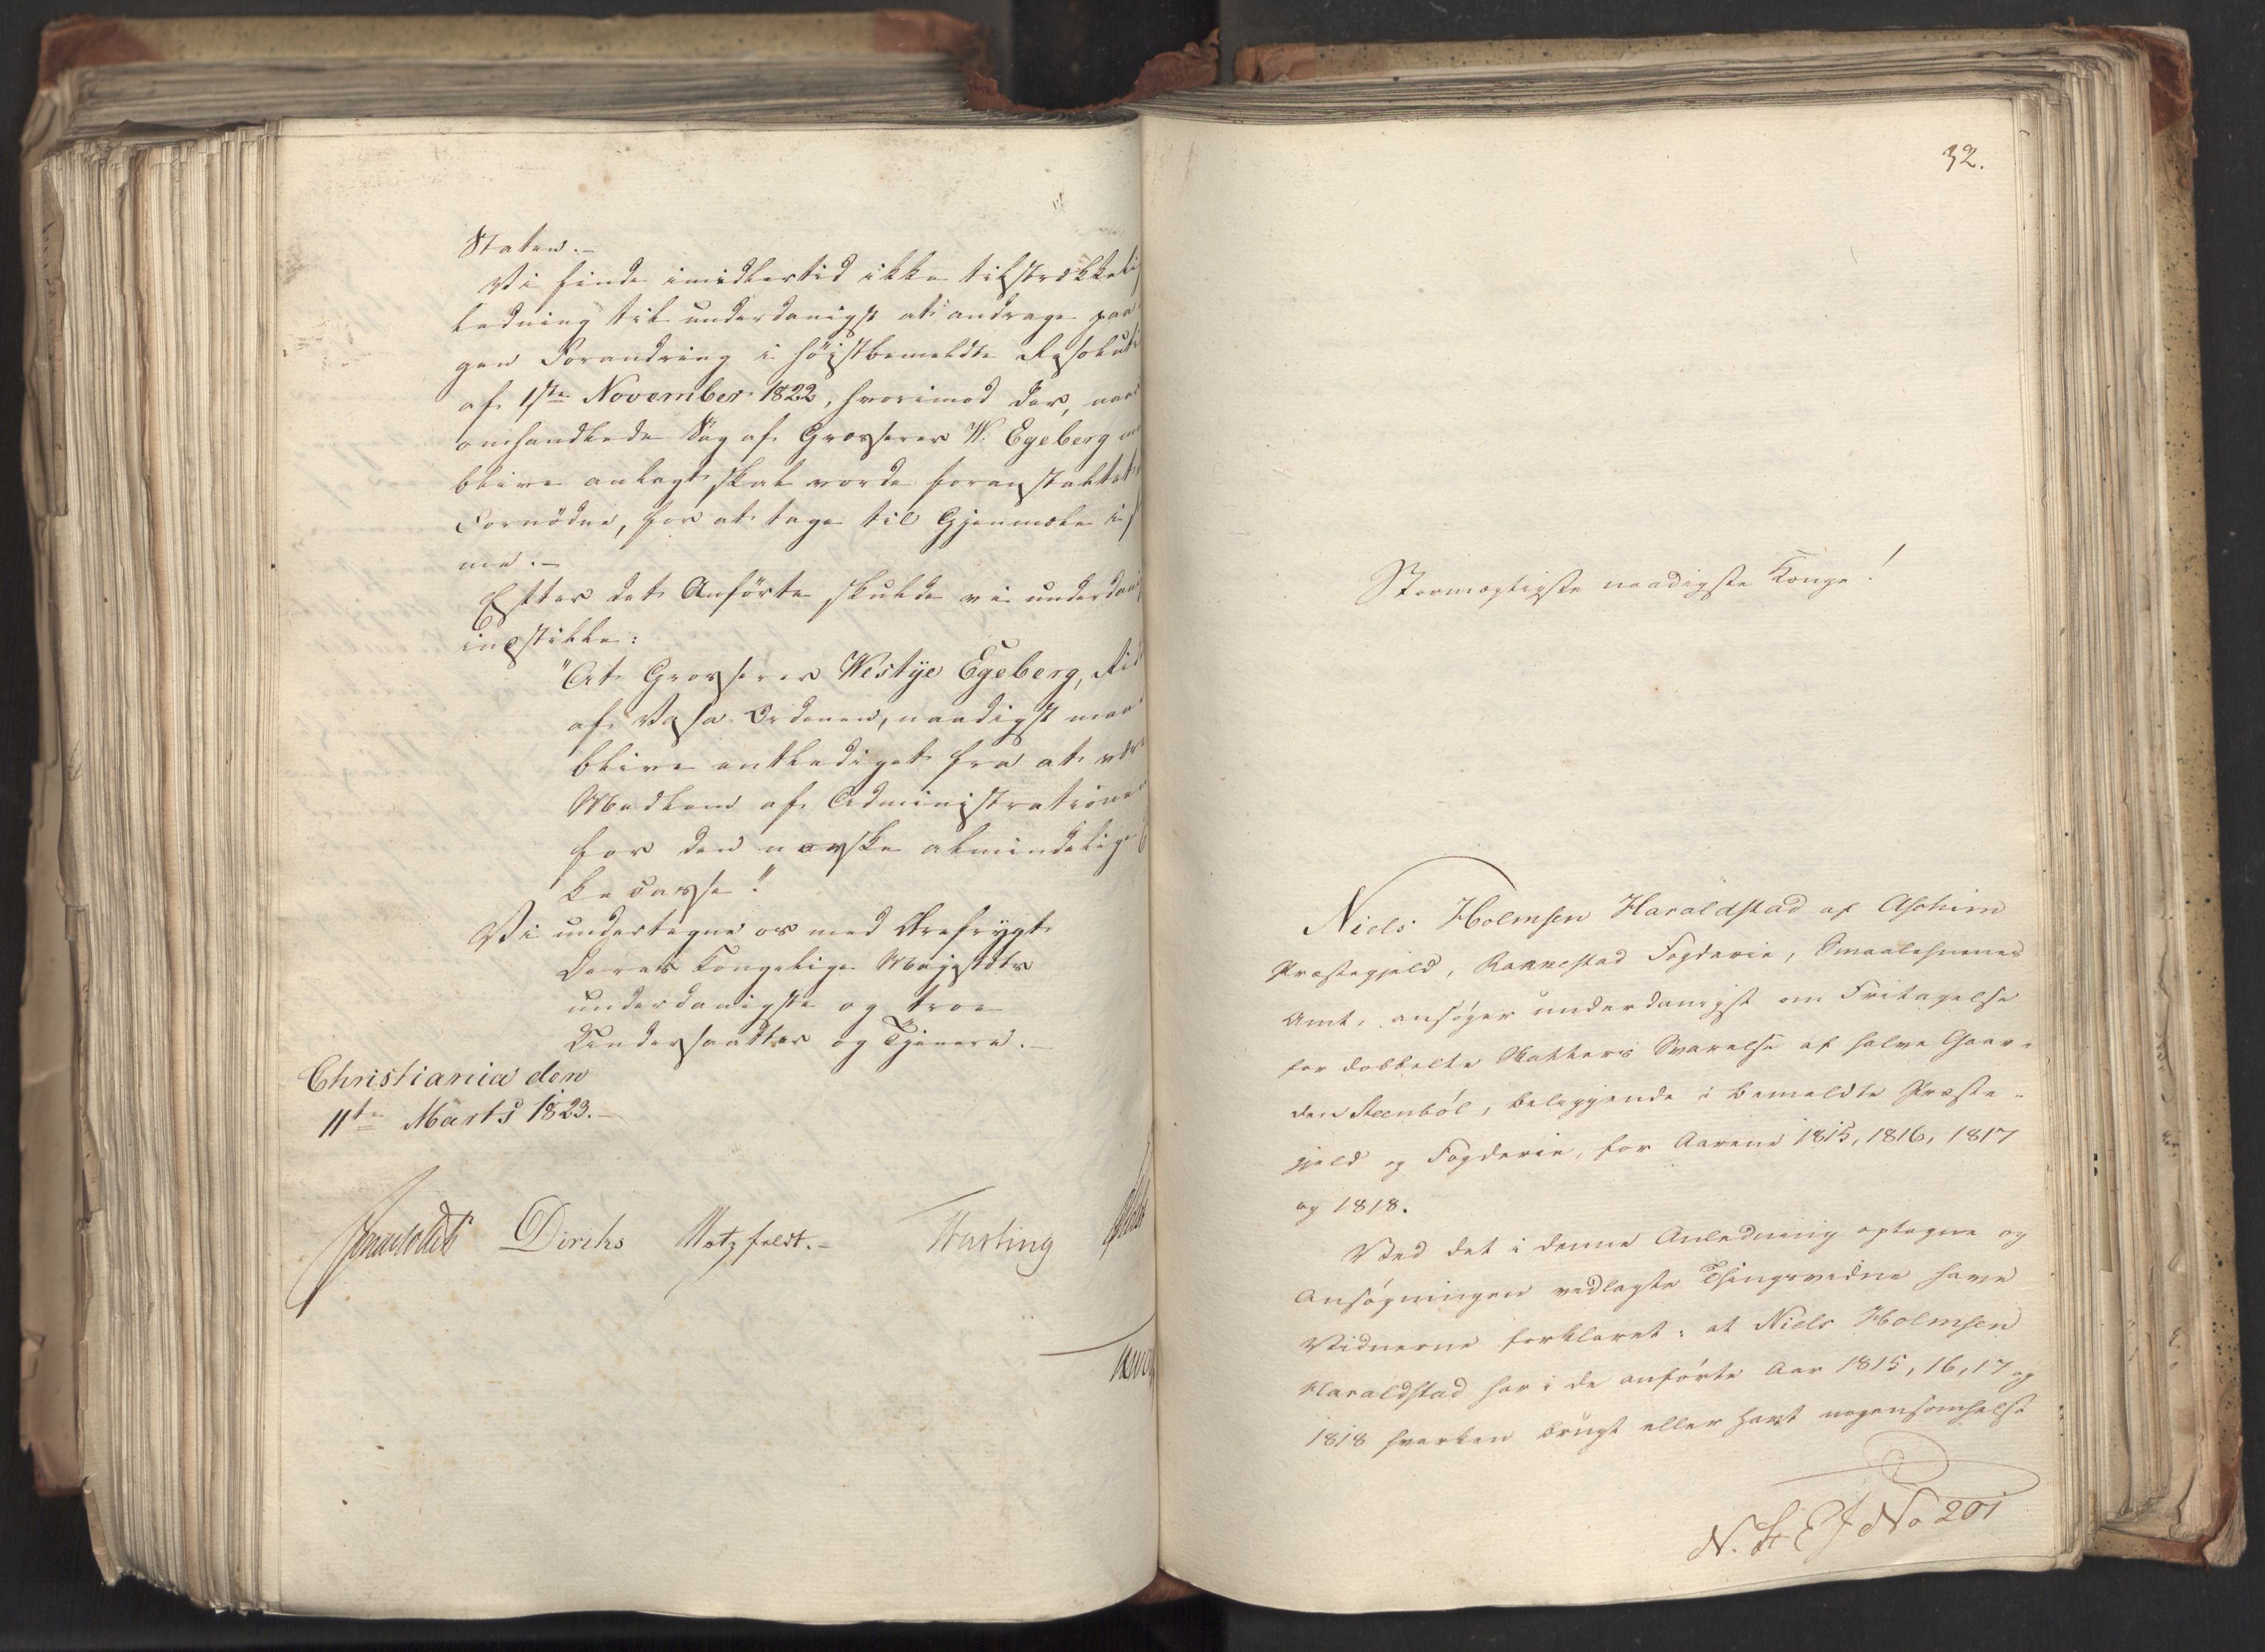 Staten.-
Vi finde imidlertid ikke tilstrækkeli
ledning til underdanigst at andrage paa
gen Forandring i höistbemeldte Resoluti
af 1ste November 1822, hvorimod der, naar
omhandlede Sag af Grosserer W. Egeberg
blive anlagt skal vorde foranstaltet
Fornödne, for at tage til Gjenmæle i
me.-
Efter det Anförte skulde vi underdani
indstille:
"At Grosserer Westye Egeberg, Rid
af Vasa-Ordenen, naadigst maa
blive entlediget fra at være
Medlem af Administrationen
for den norske almindelige
kecasse."
Vi undertegne os med Ærefrygt
Deres Kongelige Majestæts
underdanigste og troe
Undersaatter og Tjenere.-
Christiania den
11te Marts 1823.-
Diriks Motzfeldt.-
32.
Stormægtigste naadigste Konge!
Niels Holmsen Haraldstad af Aschim
Præstegjeld, Rakkestad Fogderie, Smaalehnenes
Amt, ansöger underdanigst om Fritagelse
for dobbelte Skatters Svarelse af halve Gaar-
den Steenböl, beliggende i bemeldte Præste-
gjeld og Fogderie, for Aarene 1815, 1816, 1817
og 1818.
Ved det i denne Anledning optagne og
Ansögningen vedlagte Thingsvidne have
Vidnerne forklaret: at Niels Holmsen
Haraldstad har i de anförte Aar 1815, 16, 17 og
1818 hverken brugt eller havt nogensomhelst
No 201